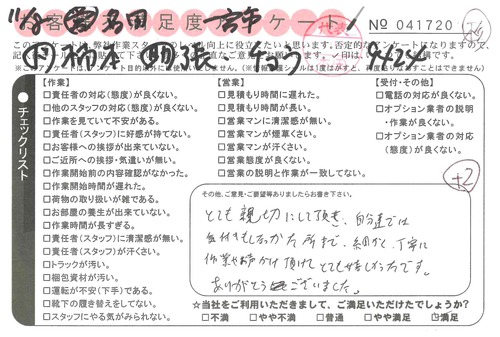 お客 満足度 アンケート No 041720
このアンケートは、弊社作業スタッフの
チェックリスト
【作業】
□責任者の対応(態度)が良くない。
□他のスタッフの対応(態度)が良くない。
□作業を見ていて不安がある。
□責任者(スタッフ)に好感が持てない。
□お客様への挨拶が出来ていない。
□ご近所への挨拶・気遣いが無い。
□作業開始前の内容確認がなかった。
□作業開始時間が遅れた。
□荷物の取り扱いが雑である。
□お部屋の養生が出来ていない。
□作業時間が長すぎる。
□責任者(スタッフ)に清潔感が無い。
□責任者(スタッフ)が汗くさい。
□トラックが汚い。
□梱包資材が汚い。
□運転が不安(下手)である。
□靴下の履き替えをしてない。
□スタッフにやる気がみられない。
【営業】
□見積もり時間に遅れた。
□見積もり時間が長い。
□営業マンに清潔感が無い。
□営業マンが煙草くさい。
□営業マンが汗くさい。
□営業態度が良くない。
□営業の説明と作業が一致してない。
【受付・その他】
□電話の対応が良くない。
□オプション業者の説明・作業が良くない。
□オプション業者の対応(態度)が良くない。
+2
その他、ご意見・ご要望等ありましたらお書き下さい。
とても親切にして頂き、自分達では
気付きもしなかった所まで、細かく、丁寧に
作業や声かけ頂けてとても嬉しかったです。
ありがとうございました。
☆当社をご利用いただきまして、ご満足いただけたでしょうか?
□不満 □やや不満 □普通 □やや満足 ☑満足